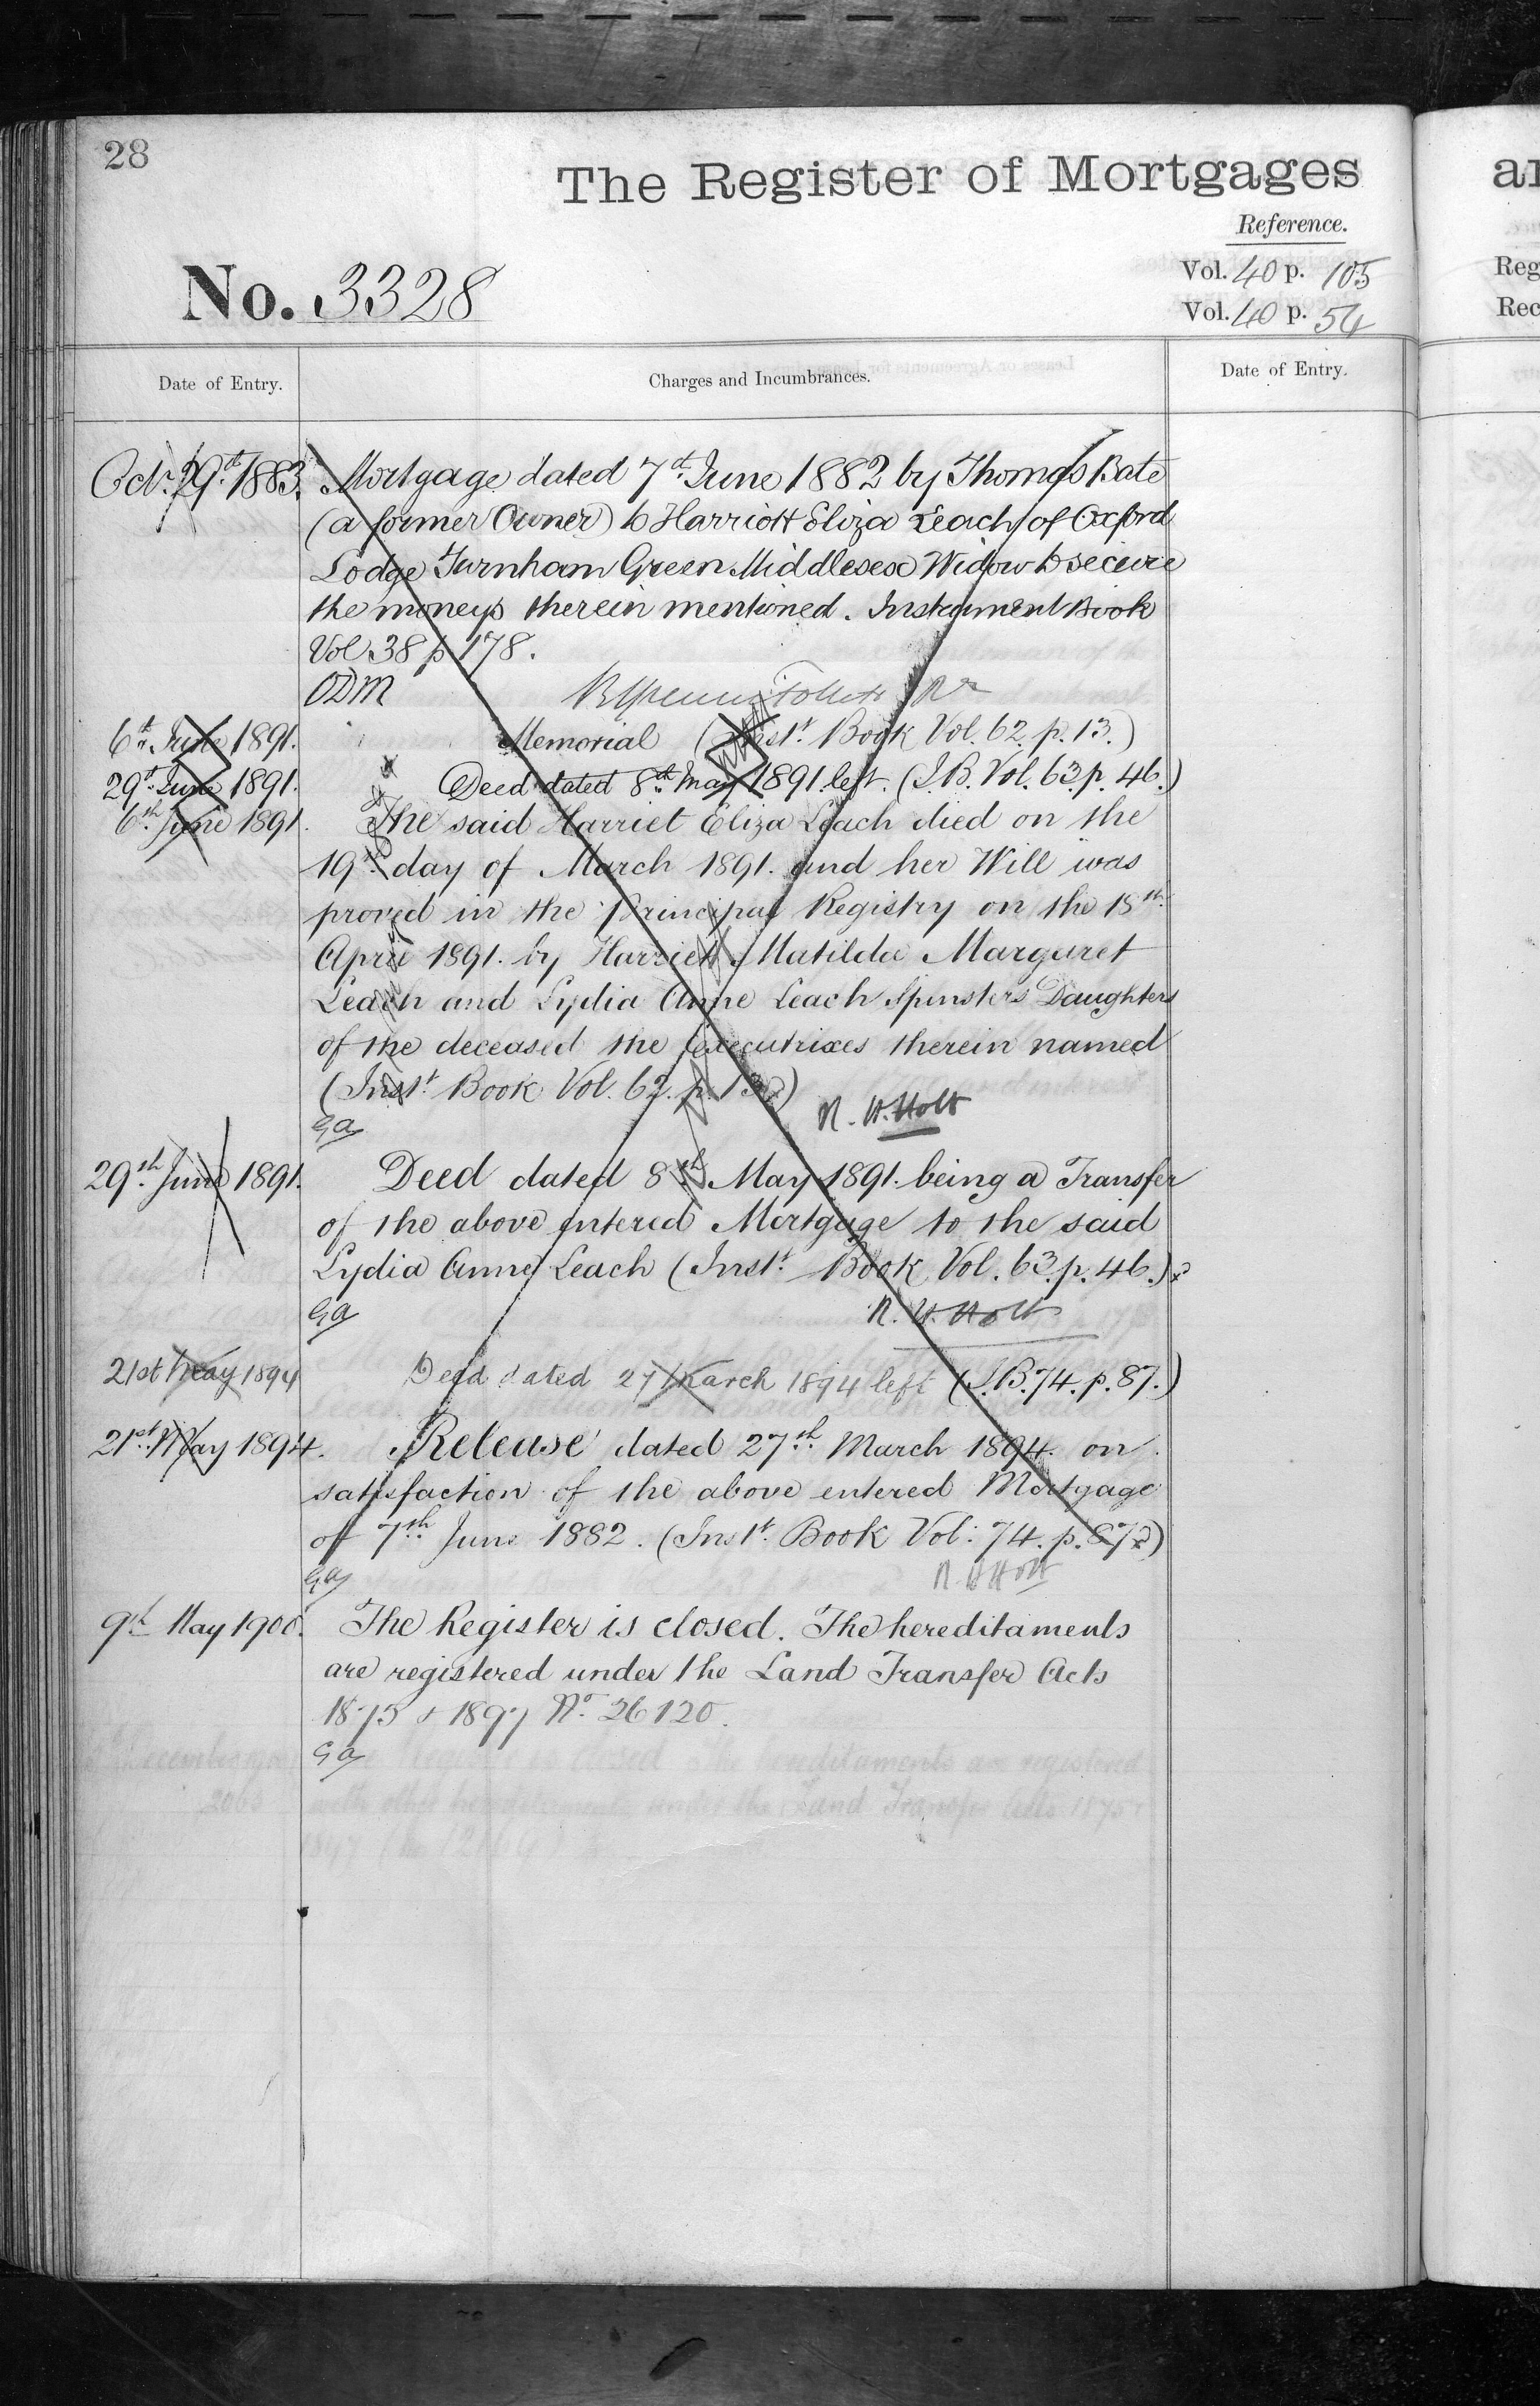 28
The Register of Mortgages
Reference.
Vol. 40 p. 105
Vol. 40 p. 54
No. 3328
Date of Entry.
Charges and Incumbrances.
Date of Entry.
Octr. 29th 1883. Mortgage dated 7th June 1882 by Thomas Bate
(a former Owner) to Harriott Eliza Leach of Oxford
Lodge Turnham Green Middlesex Widow to secure
the moneys therein mentioned. Instrument Book
Vol 38 p 178.
ODM
6th June 1891. Memorial (Inst. Book Vol. 62. p. 13.)
29th June 1891. Deed dated 8th May 1891 left. (I.B. Vol. 63. p. 46.)
6th June 1891. The said Harriet Eliza Leach died on the
19th day of March 1891. and her Will was
proved in the Principal Registry on the 15th
April 1891. by Harriett Matilda Margaret
Leach and Lydia Anne Leach Spinsters Daughters
of the deceased the executrixes therein named
(Inst. Book Vol. 62. p. 13.)
Ga R. H. Holt
29th June 1891. Deed dated 8th May 1891. being a Transfer
of the above entered Mortgage to the said
Lydia Anne Leach (Inst. Book Vol. 63. p. 46.)
Ga R. H. Holt
21st May 1894 Deed dated 27 March 1894 left (I.B. 74. p. 87.)
21st May 1894. Release dated 27th March 1894. on
satisfaction of the above entered Mortgage
of 7th June 1882. (Inst. Book Vol: 74. p. 87)
Ga R. H. Holt
9th May 1900. The Register is closed. The hereditaments
are registered under the Land Transfer Acts
1875 & 1897 No. 26120.
Ga
ar
Reg
Rec